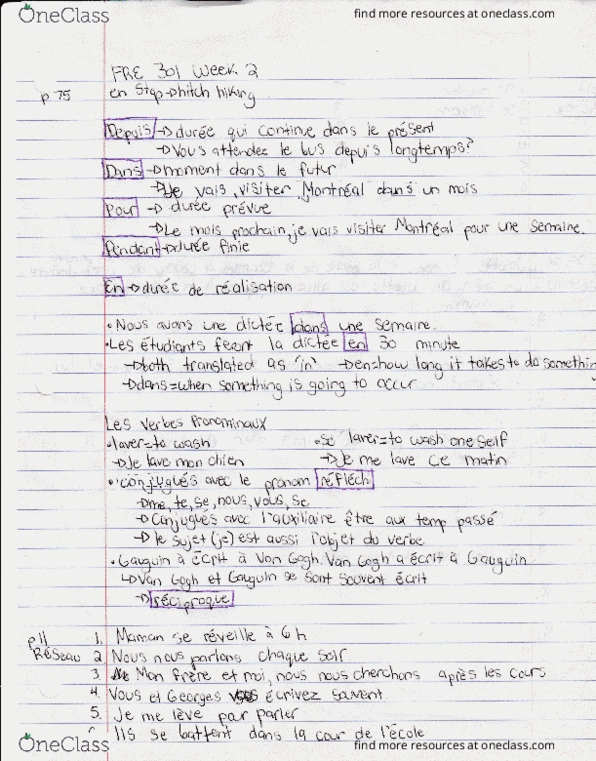 OneClass
find more resources at oneclass.com
FRE 301 Week 2
p 75
en Stop→hitch hiking
Depuis→durée qui continue dans le présent
→Vous attendez le bus depuis longtemps?
Dans→moment dans le futur
→Je vais visiter Montréal dans un mois
Pour→durée prévue
→Le mois prochain, je vais visiter Montréal pour une semaine.
Pendant→durée finie
En→durée de réalisation
•Nous avons une dictée dans une semaine.
•Les étudiants feront la dictée en 30 minute
→both translated as "in" →en=how long it takes to do somethin
→dans=when something is going to occur
Les verbes Pronominaux
•laver=to wash •se laver=to wash oneself
→Je lave mon chien →Je me lave ce matin
•conjugués avec le pronom réfléch
→me, te, se, nous, vous, se
→Conjugués avec l'auxiliaire être aux temp passé
→le sujet (je) est aussi l'objet du verbe
•Gauguin à écrit à Van Gogh. Van Gogh a écrit à Gauguin
↳Van Gogh et Gauguin se sont souvent écrit
→réciproque
p11
Réseau
1. Maman se réveille à 6h
2 Nous nous parlons chaque soir
3. Mon frère et moi, nous nous cherchons après les cours
4. Vous et Georges écrivez souvent.
5. Je me lève par parler
Ils se battent dans la cour de l'école
OneClass
find more resources at oneclass.com